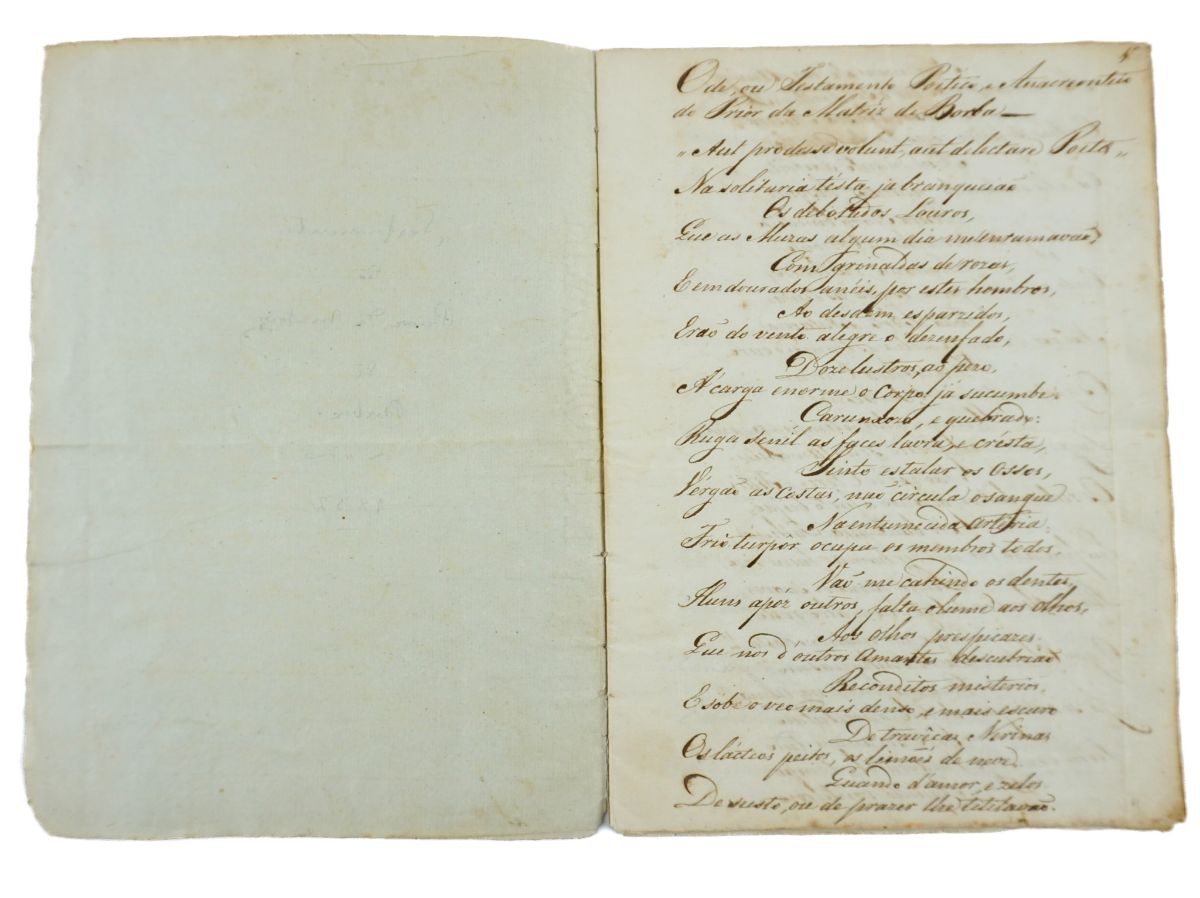 Ode, ou Testamento Poetico, e Anacreontico
do Prior da Matriz de Borba —
„Aut prodesse volunt, aut delectare Poetæ„
Na solitaria testa ja branqueião
Os debottados Louros,
Que as Muzas algum dia me enramavão,
Com grinaldas de rozas,
E em dourados anéis, por estes hombros,
Ao desdem esparzidos,
Erão do vento alegre o dezenfado,
Doze lustros, ao pezo,
A' carga enorme o Corpo já sucumbe.
Carunxozo, e quebrado:
Ruga senil as faces lavra, e crésta,
Sinto estalar os Ossos,
Vérgão as Costas, não circula o sangue
Na entumecida arteria
Frio turpôr ocupa os membros todos.
Vão me cahindo os dentes,
Huns apóz outros, falta o lume aos olhos,
Aos olhos prespicazes
Que nos d'outros Amantes descubrião
Reconditos misterios.
E sobe o veo mais denso, e mais escuro
De travêças Nerinas
Os lácteos peitos, os limoẽs de neve
Quando d'amor, e zelos
De susto, ou de prazer lhe titilavão.